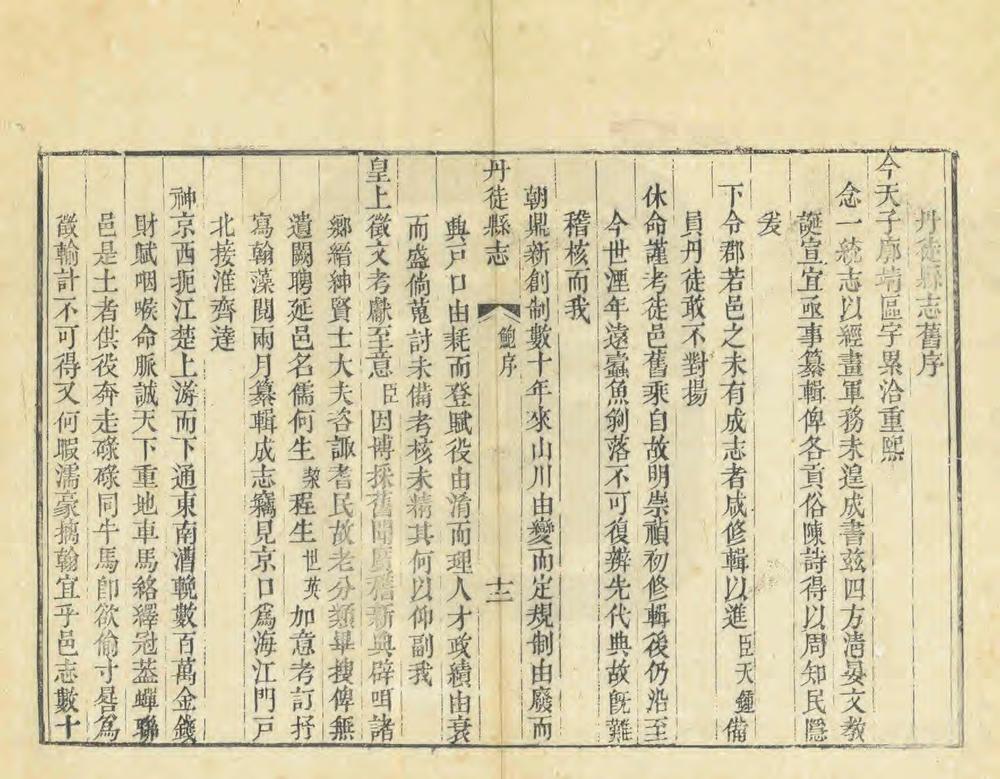 丹徒縣志舊序
今天子廓靖區宇累洽重熙
念一統志以經畫軍務未遑成書茲四方淸晏文敎
誕宣宜亟事纂輯俾各貢俗陳詩得以周知民隱
爰
下令郡若邑之未有成志者咸修輯以進臣天鍾備
員丹徒敢不對揚
休命謹考徒邑舊乘自故明崇禎初修輯後仍沿至
今世湮年遠蠹魚剝落不可復辨先代典故旣難
稽核而我
朝鼎新創制數十年來山川由變而定規制由廢而
丹徒縣志
鮑序
十二
興戶口由耗而登賦役由淆而理人才政績由衰
而盛倘蒐討未備考核未精其何以仰副我
皇上徵文考獻至意臣因博採舊聞廣稽新典辟咡諸
鄉縉紳賢士大夫咨諏耆民故老分類畢搜俾無
遺闕聘延邑名儒何生㓗程生世英加意考訂抒
寫翰藻閱兩月纂輯成志竊見京口爲海江門戸
北接淮齊達
神京西扼江楚上游而下通東南漕輓數百萬金錢
財賦咽喉命脈誠天下重地車馬絡繹冠蓋蟬聯
邑是土者供役奔走碌碌同牛馬卽欲偷寸晷爲
徵輸計不可得又何暇濡豪摛翰宜乎邑志數十